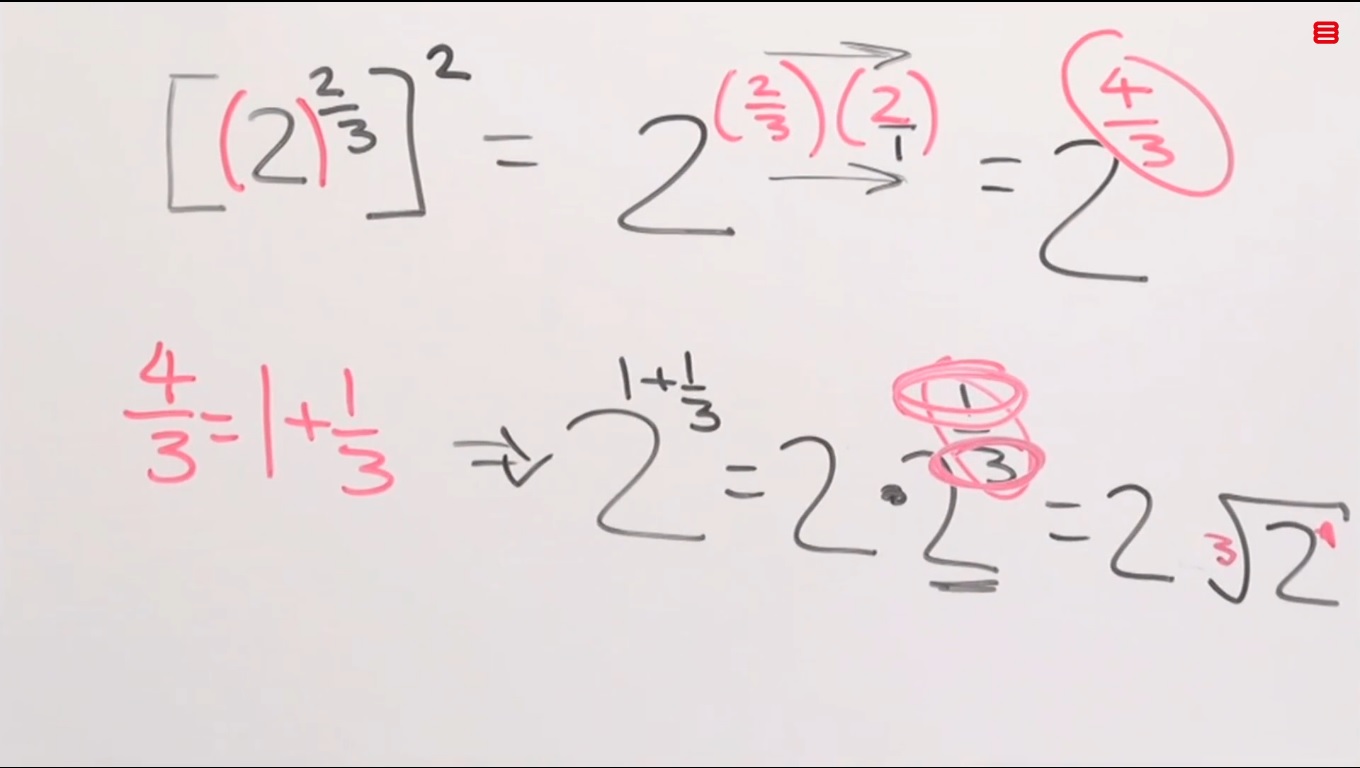 [(2)^{2/3}]^2 = 2^{(2/3)(2/1)} = 2^{4/3}
4/3 = 1 + 1/3 ⇒ 2^{1 + 1/3} = 2 • 2^{1/3} = 2 ∛2^1